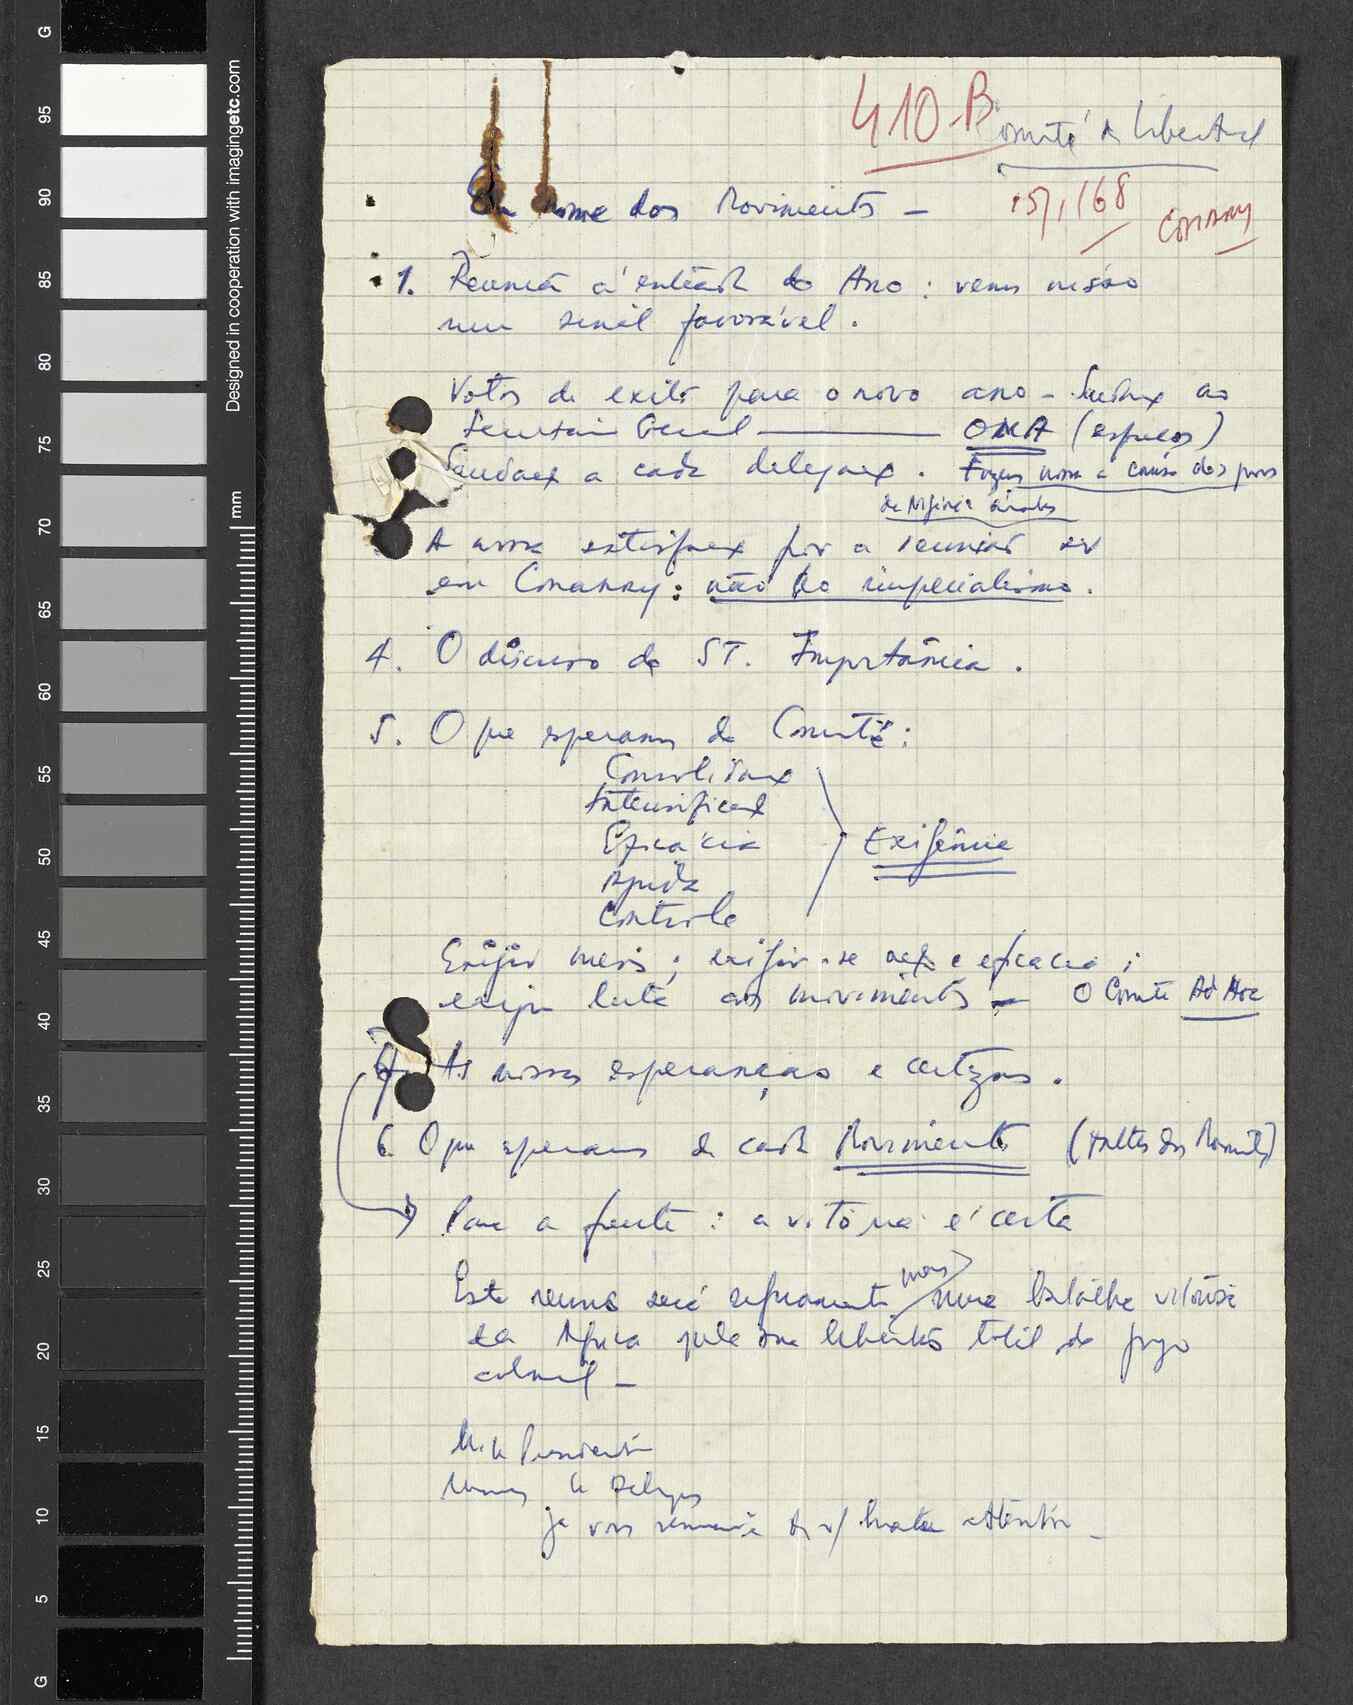 410-B
Comité de Libertação
15/1/68
CONAKRY
Em nome dos Movimentos —
1. Reunião à entrada do Ano : vemos nisso
um sinal favorável.
Votos de exito para o novo ano - Saudação ao
Secretario Geral — OUA (esforços)
Saudação a cada delegação. Fazemos nossa a causa dos povos
A nossa satisfação por a reunião
em Conakry: não do imperialismo.
4. O discurso do ST. Importância.
5. O que esperamos do Comité:
Consolidação
Intensificação
Eficácia
Ajuda
Controle
Exigência
Exigir mais; exigir-se ação e eficacia;
exigir luta aos movimentos — O Comité Ad Hoc
As nossas esperanças e certezas.
6. O que esperamos de cada Movimento
Para a frente : a vitória é certa
Esta reunião será mais uma batalha vitoriosa
da Africa pela sua libertação total do jugo
colonial —
M. le Président
Messieurs les Délégués
je vous remercie de v/ haute attention —
G
95
90
85
80
75
70
65
60
55
50
45
40
35
30
25
20
15
10
5
G
Designed in cooperation with imagingetc.com
mm